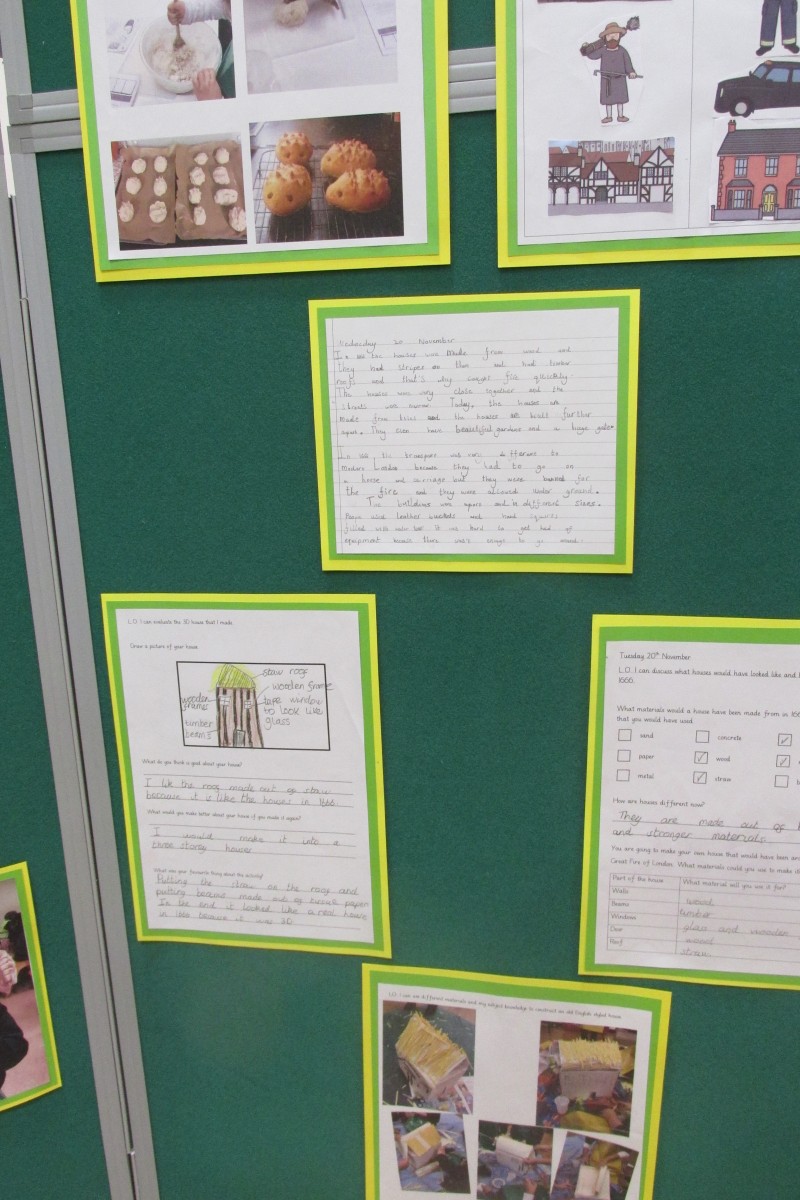 Wednesday 20 November
In 1666 the houses was made from wood and
they had stripes on them and had timber
roofs and that's why caught fire quickly.
The houses was very close together and the
streets was narrow. Today, the houses are
made from brics and the houses are built further
apart. They even have beautiful gardens and a huge gate.
In 1666 the transport was very different to
modern London because they had to go on
a horse and carriage but they were banned for
the fire and they were allowed under ground.
The buildings was square and in different sizes.
filled with water but it was hard to get hold of
equipment because there wasn't enough to go around.
L.O. I can evaluate the 3D house that I made.
Draw a picture of your house.
straw roof
wooden frame
wooden frames
tape window to look like glass
timber beams
What do you think is good about your house?
I like the roof made out of straw
because it is like the houses in 1666.
What would you make better about your home if you made it again?
I would make it into a
three storey house
What was your favourite thing about the activity?
Putting the straw on the roof and
putting beams made out of tissue paper
In the end it looked like a real house
in 1666 because it was 3D
Tuesday 20th November
L.O. I can discuss what houses would have looked like and
1666.
What materials would a house have been made from in 166
that you would have used.
sand
concrete
paper
wood
metal
straw
How are houses different now?
They are made out of
and stronger materials.
You are going to make your own house that would have been aro
Great Fire of London. What materials could you use to make
Part of the house What material will you use it for?
Walls wood
Beams timber
Window glass and wooden
Door wood
Roof straw
L.O. I can use different materials and my subject knowledge to construct an old English styled house